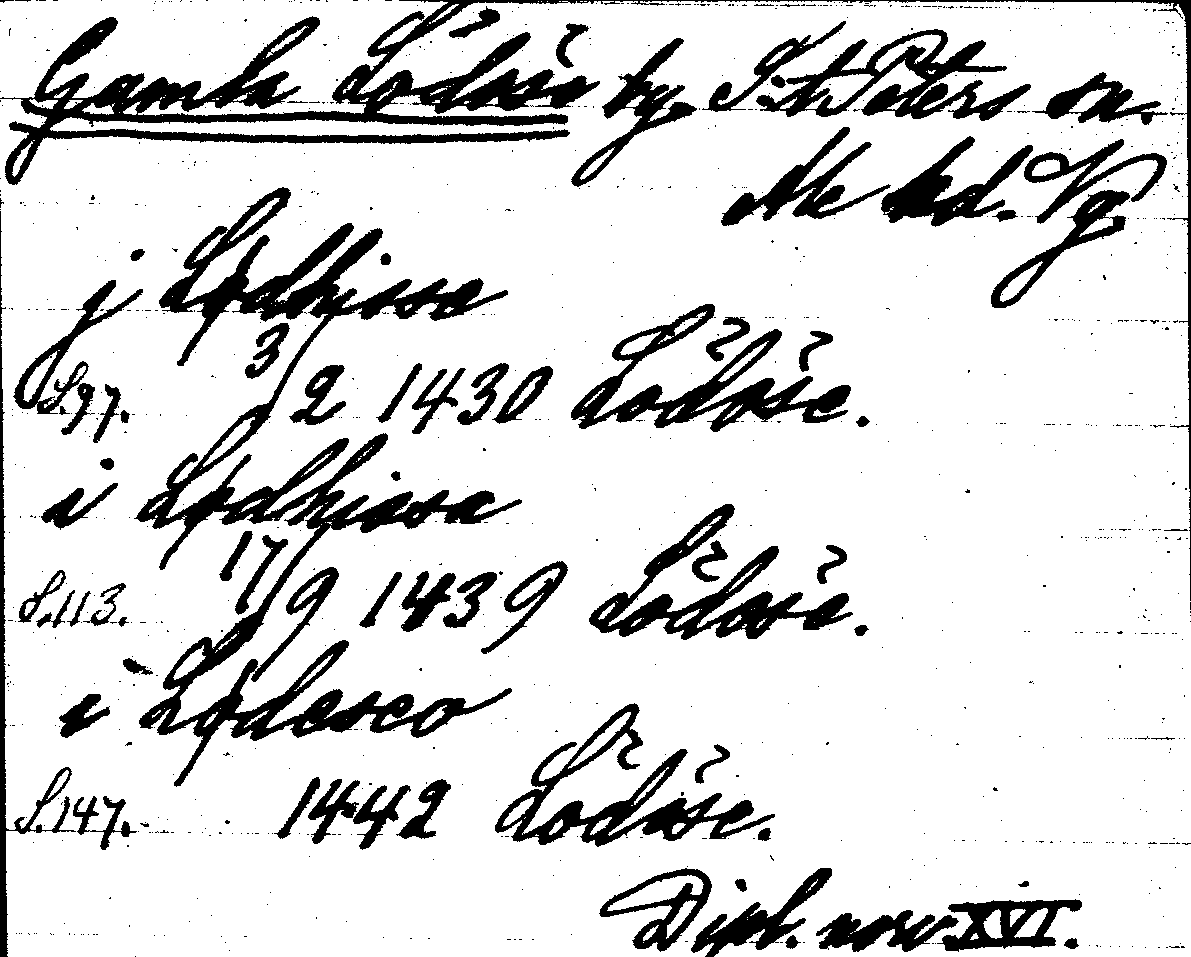 Gamla Lödöse by. S:t Peters sn.
Ale hd. Vg.
j Lødhisse
S.97. 3/2 1430 Lödöse.
i Lødhiosa
S.113. 17/9 1439 Lödöse.
i Lødeseo
S.147. 1442 Lödöse.
Dipl. norv. XVI.